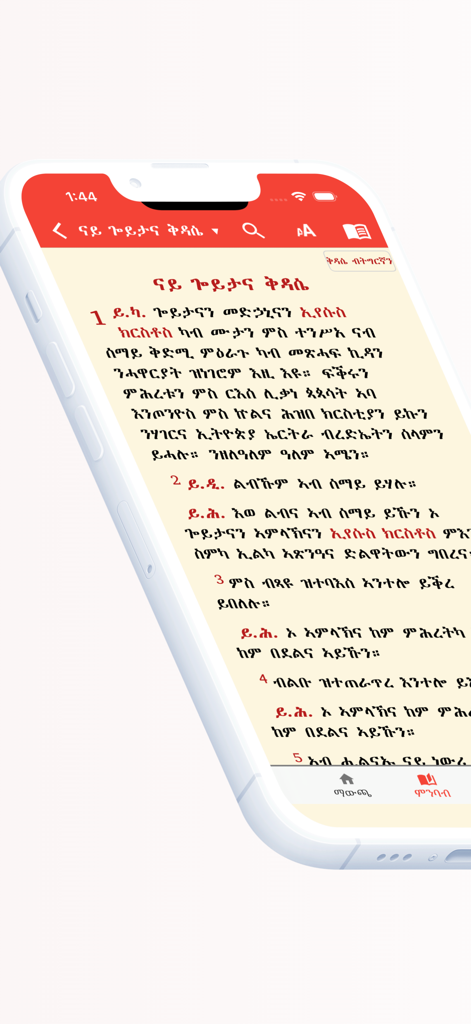 1:44
ናይ ጐይታና ቅዳሴ ▼
AA
ቅዳሴ ብትግርኛን
ናይ ጐይታና ቅዳሴ
1 ይ.ካ. ጐይታናን መድኃኒናን ኢየሱስ
ክርስቶስ ካብ ሙታን ምስ ተንሥአ ናብ
ሰማይ ቅድሚ ምዕራጉ ካብ መጽሓፍ ኪዳን
ንሓዋርያት ዝነገሮም እዚ እዩ። ፍቕሩን
ምሕረቱን ምስ ርእሰ ሊቃነ ጳጳሳት አባ
እንጦንዮስ ምስ ኵልና ሕዝበ ክርስቲያን ይኩን
ንሃገርና ኢትዮጵያ ኤርትራ ብረድኤትን ሰላምን
ይሓሉ። ንዘለዓለም ዓለም ኣሜን።
2 ይ.ዲ. ልብኹም ኣብ ሰማይ ይሃሉ።
ይ.ሕ. እወ ልብና ኣብ ሰማይ ይኹን ኦ
ጐይታናን ኣምላኽናን ኢየሱስ ክርስቶስ
ስምካ ኢልካ ኣጽንዓና ድልዋትውን
3 ምስ ብጻዩ ዝተባእሰ ኣንተሎ ይቕረ
ይበለሉ።
ይ.ሕ. ኦ ኣምላኽና ከም ምሕረትካ
ከም በደልና ኣይኹን።
4 ብልቡ ዝተጠራጥረ እንተሎ
ይ.ሕ. ኦ ኣምላኽና ከም
ከም በደልና ኣይኹን።
5 ኣብ
ማውጫ
ምንባብ